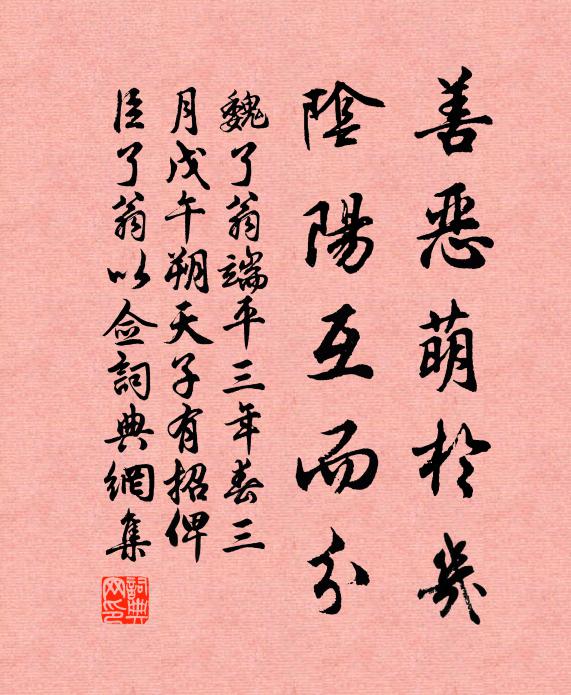 善惡萌於幾
陰陽互而分
魏了翁端平三年春三
月戊午朔天子有招俾
臣了翁以僉詞典網集
詞典網印